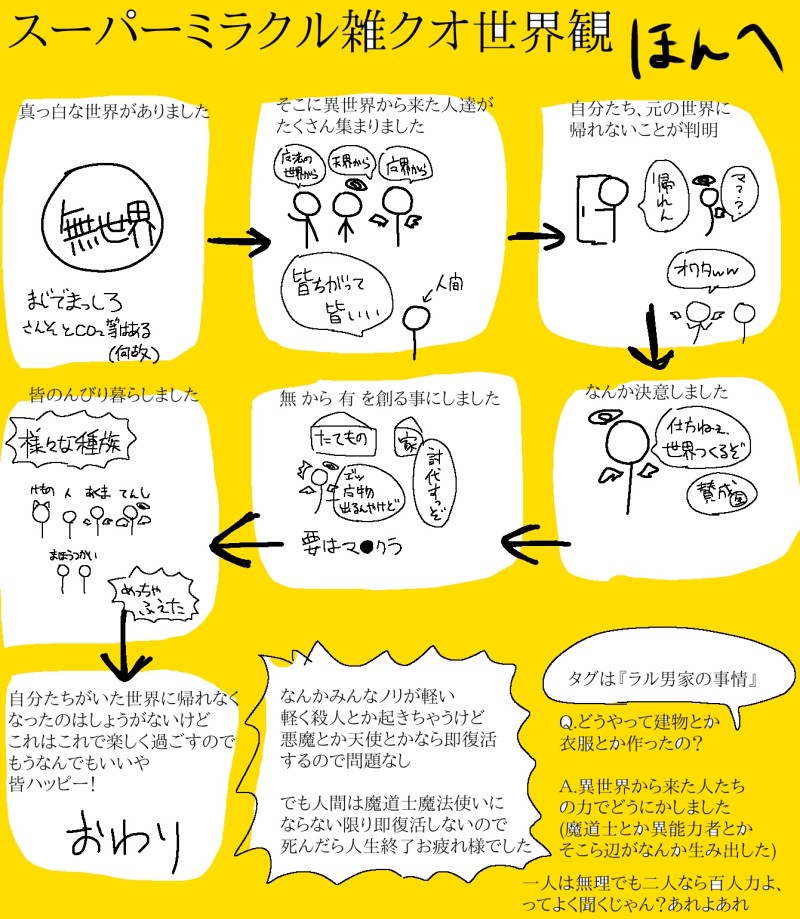 スーパーミラクル雑クオ世界観 ほんへ
真っ白な世界がありました
無世界
まじでまっしろ
さんそとCO2等はある
(何故)
そこに異世界から来た人達が
たくさん集まりました
魔法の
世界から
天界から
魔界から
皆ちがって
皆いい
人間
自分たち、元の世界に
帰れないことが判明
帰れん
マ??
オワタww
なんか決意しました
仕方ねぇ
世界つくるぞ
賛成
無 から 有 を創る事にしました
たてもの
家
エッ
魔物
出るんやけど
討伐すっぞ
要はマ●クラ
皆のんびり暮らしました
様々な種族
けもの 人 あくま てんし
まほうつかい
めっちゃ
ふえた
自分たちがいた世界に帰れなく
なったのはしょうがないけど
これはこれで楽しく過ごすので
もうなんでもいいや
皆ハッピー!
おわり
なんかみんなノリが軽い
軽く殺人とか起きちゃうけど
悪魔とか天使とかなら即復活
するので問題なし
でも人間は魔道士魔法使いに
ならない限り即復活しないので
死んだら人生終了お疲れ様でした
タグは『ラル男家の事情』
Q.どうやって建物とか
衣服とか作ったの?
A.異世界から来た人たち
の力でどうにかしました
(魔道士とか異能力者とか
そこら辺がなんか生み出した)
一人は無理でも二人なら百人力よ、
ってよく聞くじゃん?あれよあれ